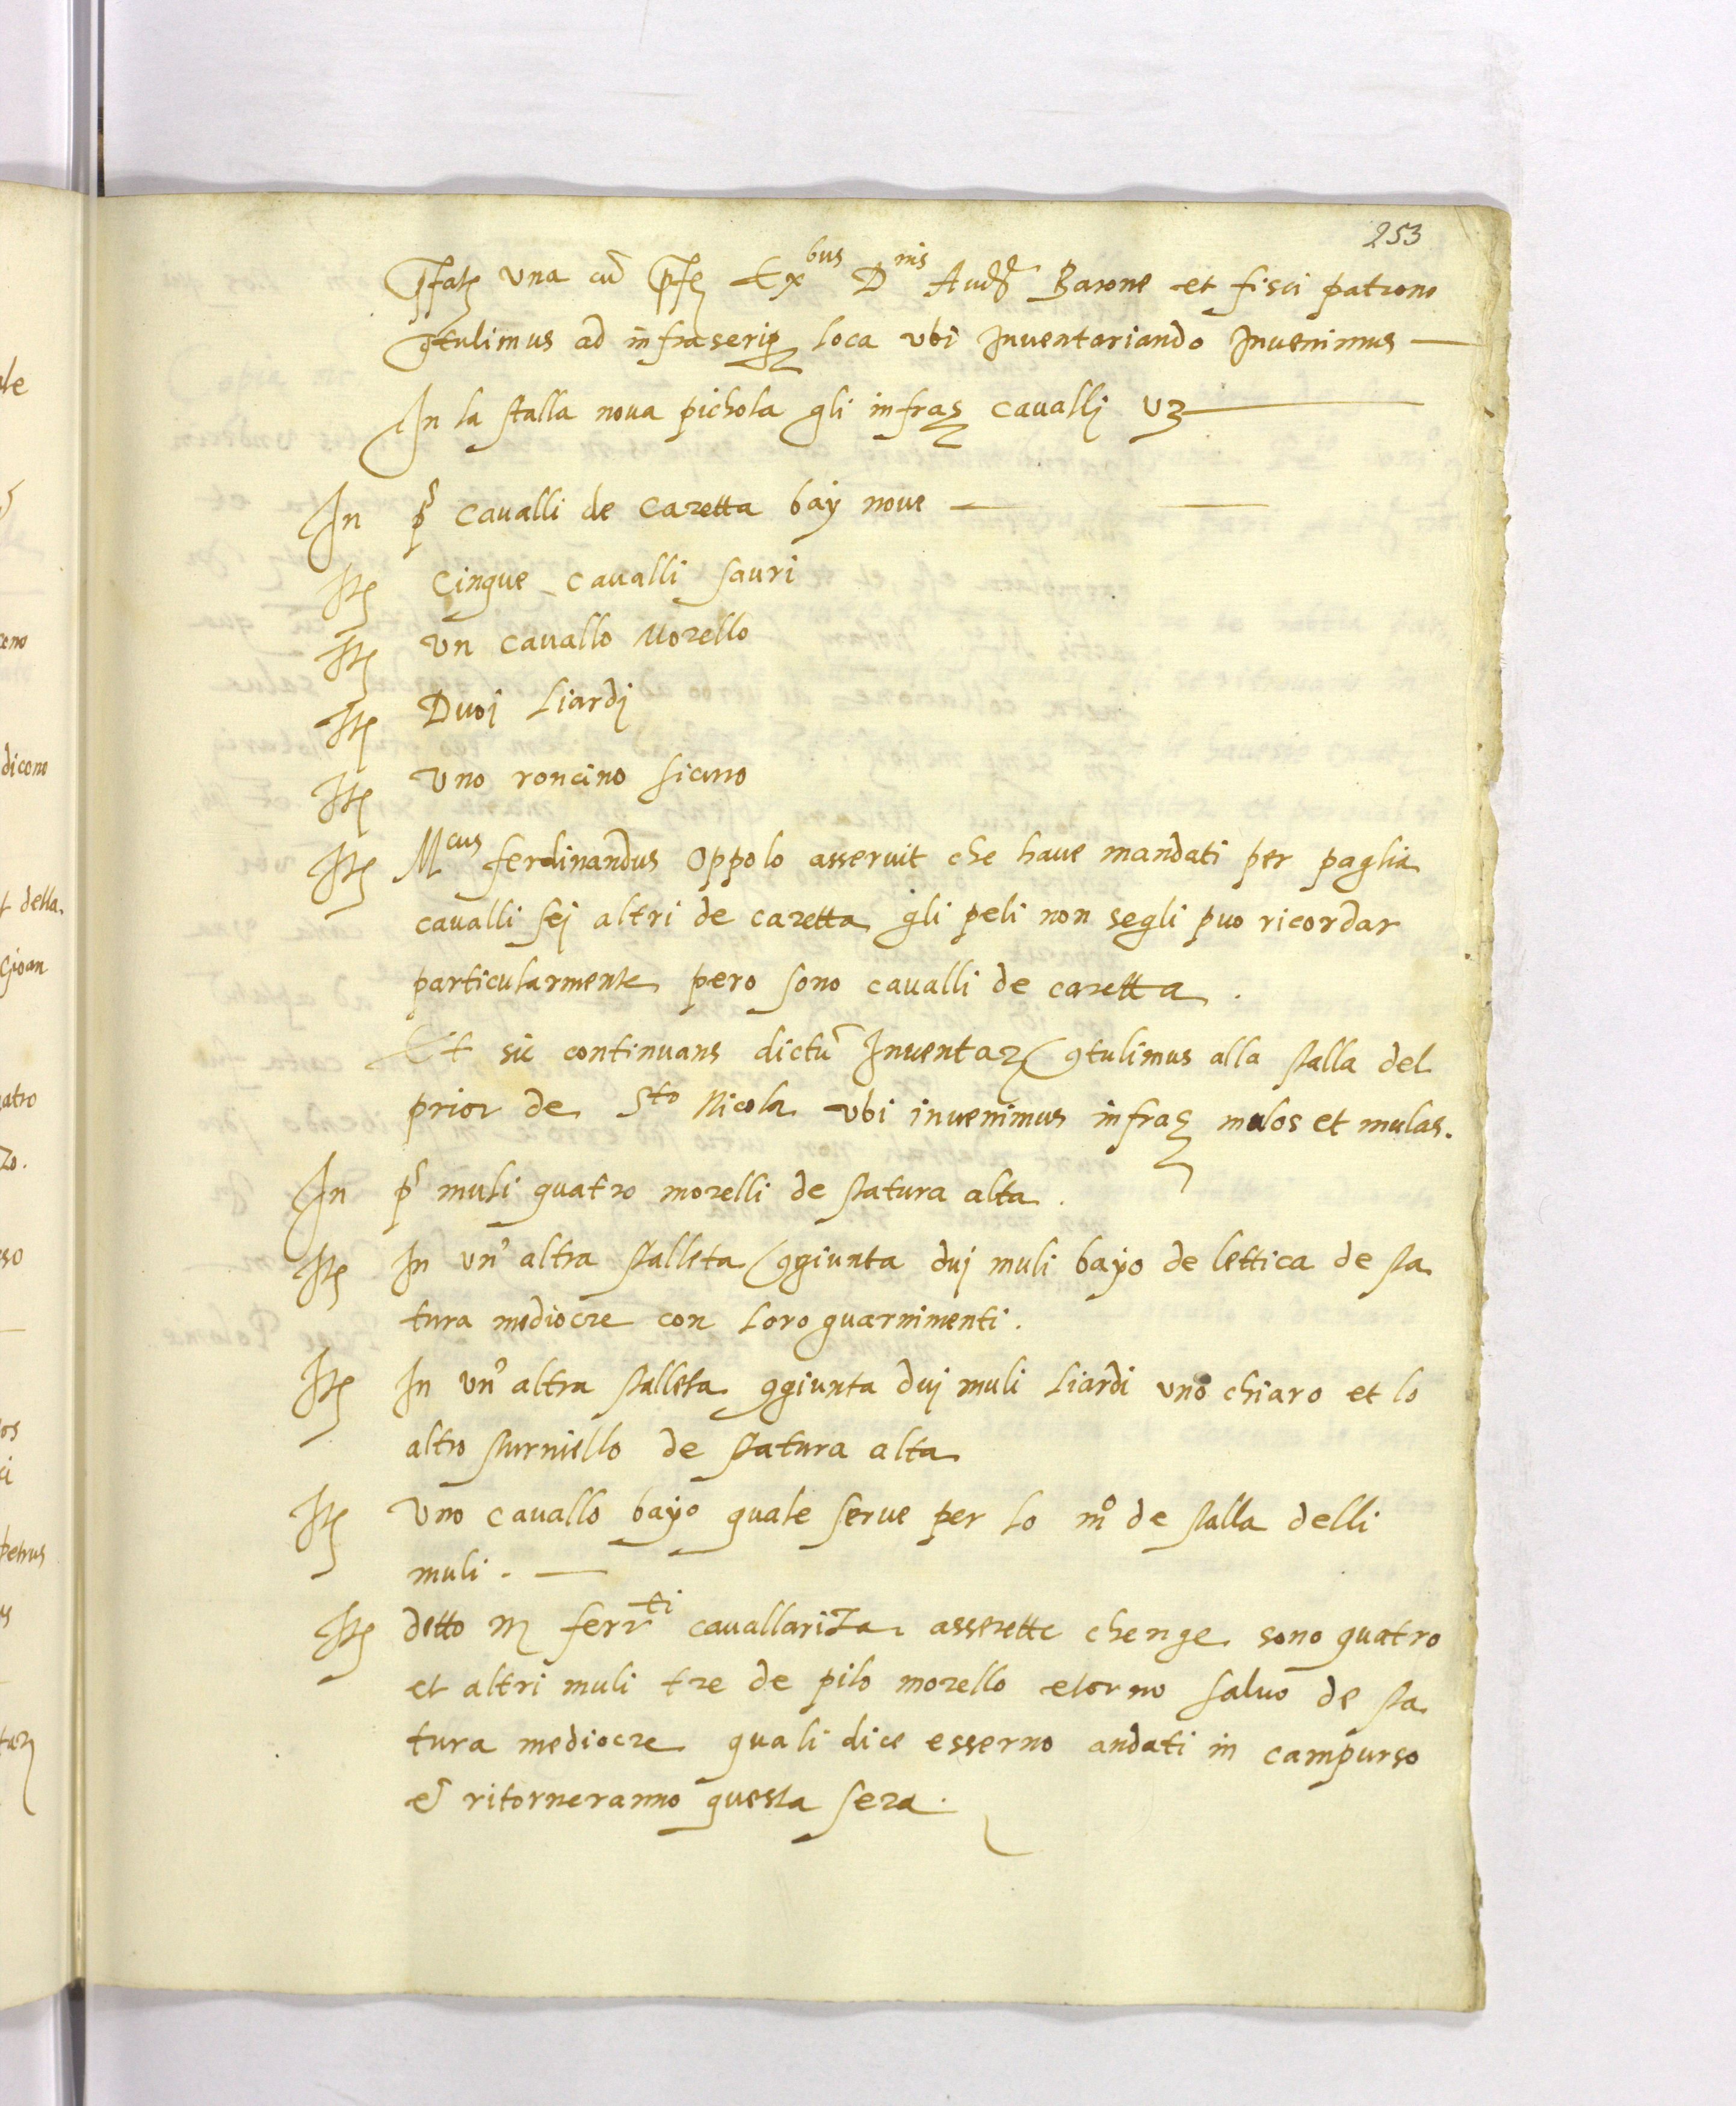 253
p̄fatȝ una cū p̄fȝ Ex^bus D^nis Audr̄ Barone et fisci patrono
9tulimus ad infrascrip loca ubi Inventariando Invenimus —
In la stalla nova pichola gli infras cavallj vz —
In p̊ cavalli de caretta bay nove —
Itȝ cinque cavalli sauri
Itȝ un cavallo Morello
Itȝ Duoj Liardj
Itȝ Uno roncino sicuro
Itȝ M^cus ferdinandus Oppolo asseruit che have mandati per paglia
cavalli sej altri de caretta gli peli non segli puo ricordar
particularmente pero sono cavalli de caretta.
Et sic continuans dictū Inventarȝ 9tulimus alla stalla del
prior de S^to Nicola ubi invenimus infras mulos et mulas.
In p̊ muli quatro morelli de statura alta.
Itȝ In un' altra stalleta 9giunta duj muli bayo de lettica de sta
tura mediocre con loro guarnimenti.
Itȝ In un' altra stalleta 9giunta duj muli liardi uno chiaro et lo
altro sturniello de statura alta
Itȝ Uno cavallo bayo quale serve per lo m^o de stalla delli
muli. —
Itȝ detto M ferr^ti cavallariza asserette chenge sono quatro
et altri muli tre de pilo morello etorno salvo de sta
tura mediocre quali dice esserno andati in campurso
et ritorneranno questa sera.
dicono
della
Gioan
petrus